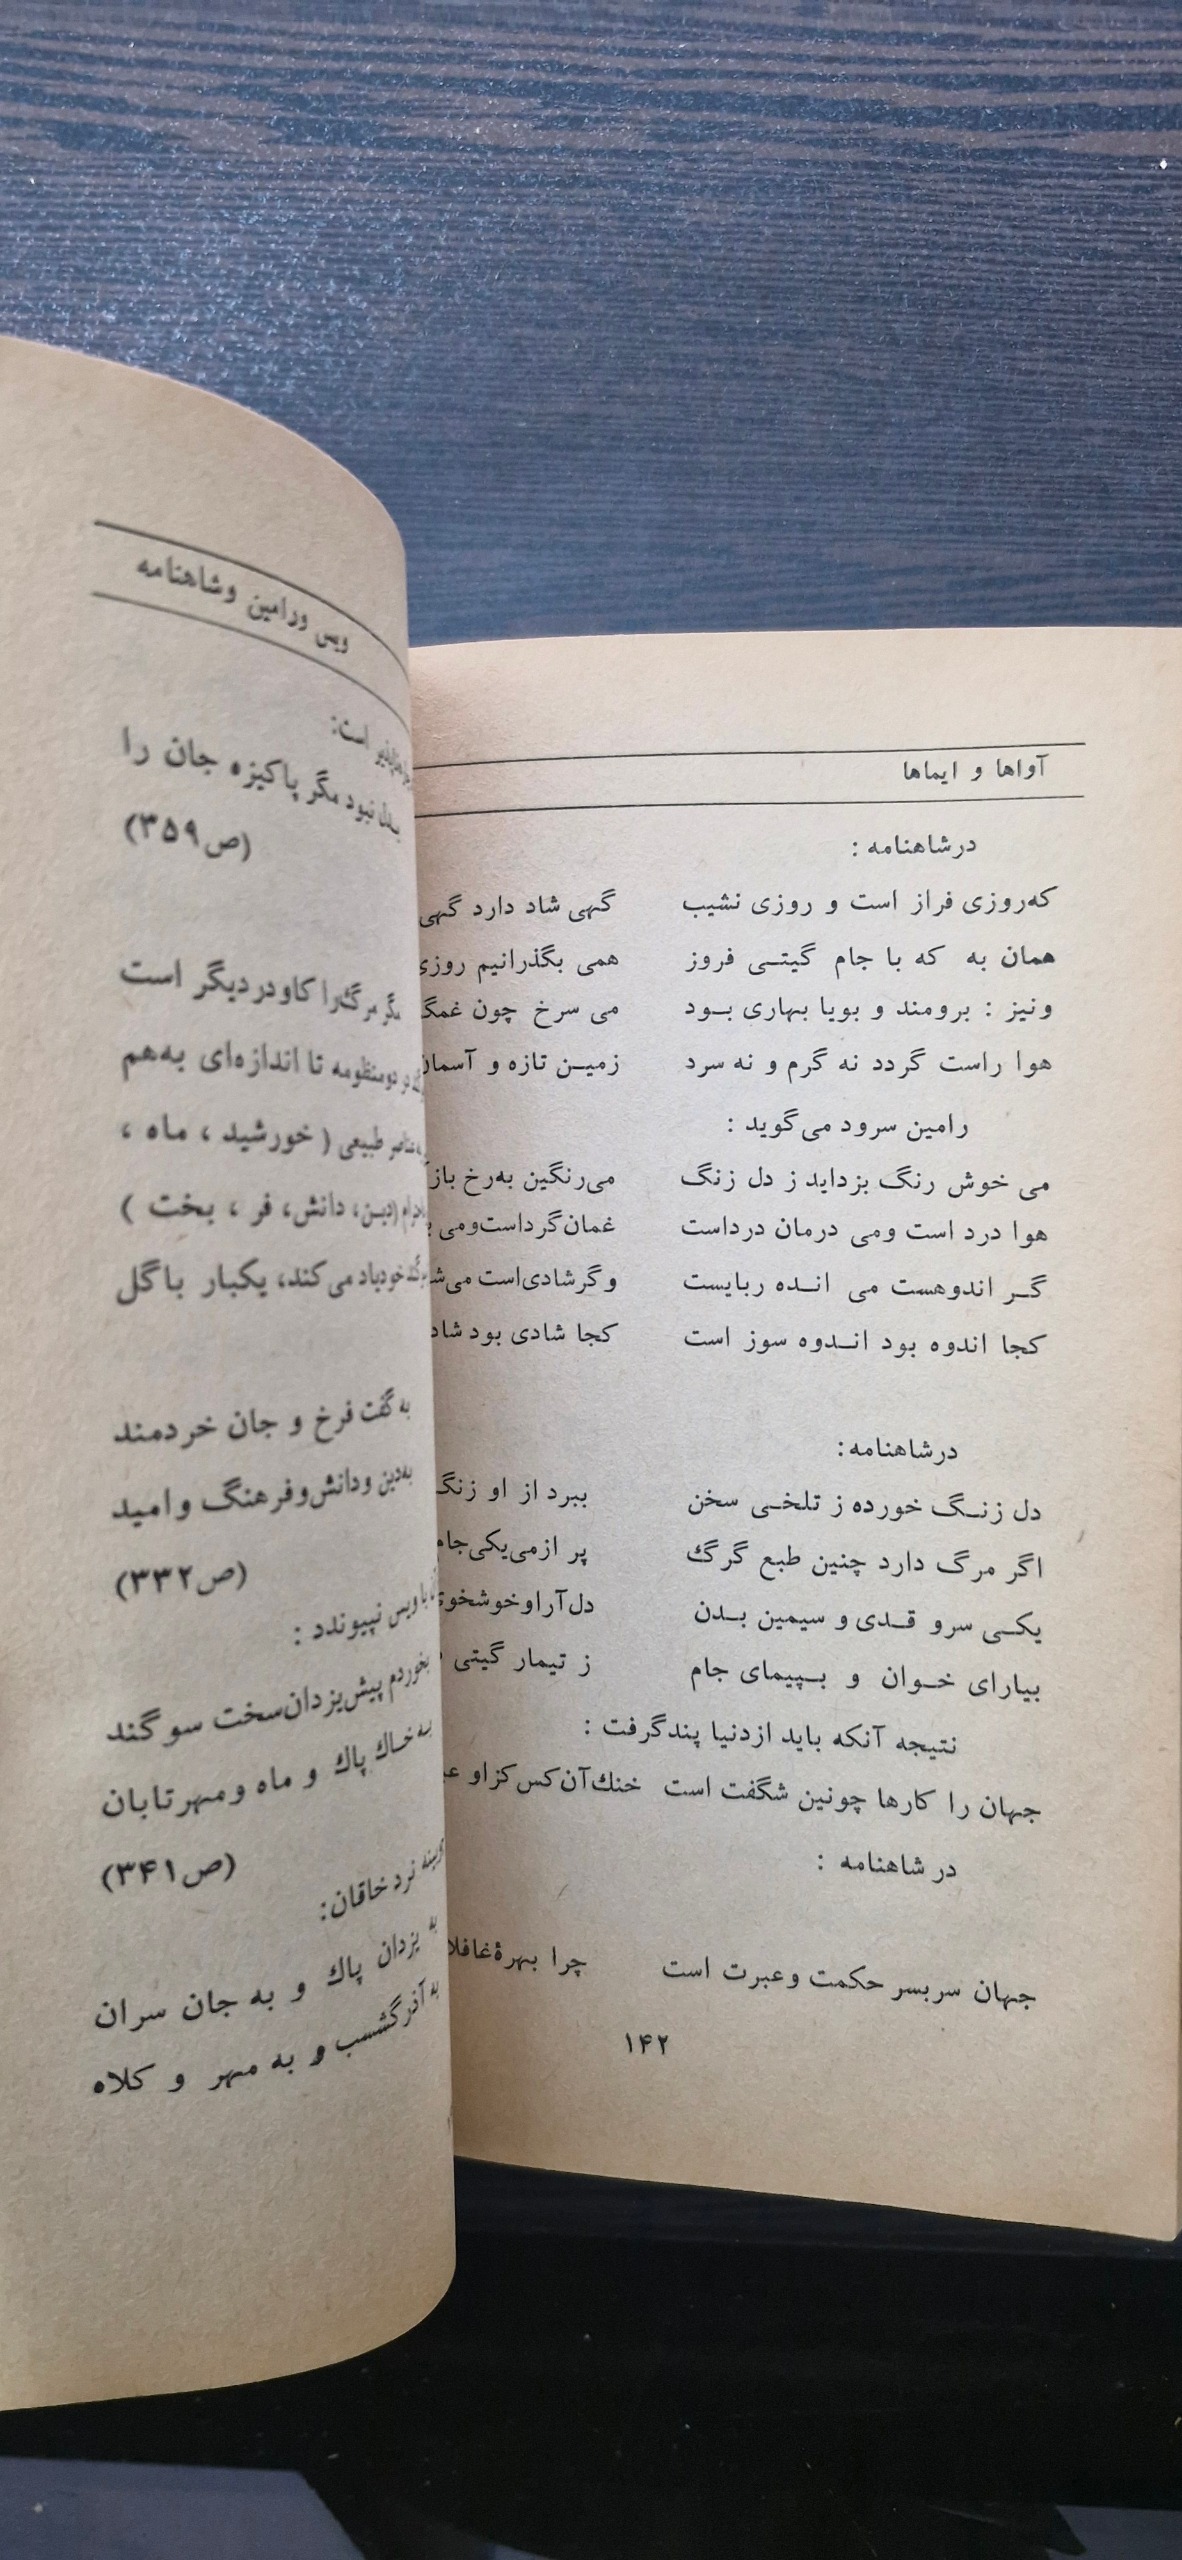 آواها و ایماها
درشاهنامه :
که‌روزی فراز است و روزی نشیب گهی شاد دارد گهی
همان به که با جام گیتی فروز همی بگذرانیم روزی
ونیز : برومند و بویا بهاری بود می سرخ چون
هوا راست گردد نه گرم و نه سرد زمین تازه و
رامین سرود می‌گوید :
می خوش رنگ بزداید ز دل زنگ می‌رنگین به‌رخ
هوا درد است ومی درمان درداست غمان‌گرداست‌ومی
گر اندوهست می انده ربایست وگرشادی‌است
کجا اندوه بود اندوه سوز است کجا شادی بود
درشاهنامه:
دل زنگ خورده ز تلخی سخن ببرد از او
اگر مرگ دارد چنین طبع گرگ پر ازمی‌یکی‌جام
یکی سرو قدی و سیمین بدن دل‌آراوخوشخوی
بیارای خوان و بپیمای جام ز تیمار گیتی
نتیجه آنکه باید ازدنیا پندگرفت :
جهان را کارها چونین شگفت است خنك‌آن‌کس‌کزاو
در شاهنامه :
جهان سربسر حکمت وعبرت است چرا بهرهٔ
۱۴۲
ویس ورامین وشاهنامه
است:
نبود مگر پاکیزه جان را
(ص۳۵۹)
مگر مرگ‌را کاودردیگر است
دومنظومه تا اندازه‌ای به‌هم
طبیعی ( خورشید ، ماه ،
(دین، دانش، فر ، بخت )
یاد می‌کند، یکبار باگل
به گفت فرخ و جان خردمند
به‌دین ودانش‌وفرهنگ وامید
(ص۳۳۲)
با ویس نپیوندد :
بخوردم پیش‌یزدان‌سخت سوگند
به خاك پاك و ماه ومهرتابان
(ص۳۴۱)
نزد خاقان:
به یزدان پاك و به جان سران
به آذرگشسب و به مهر و کلاه